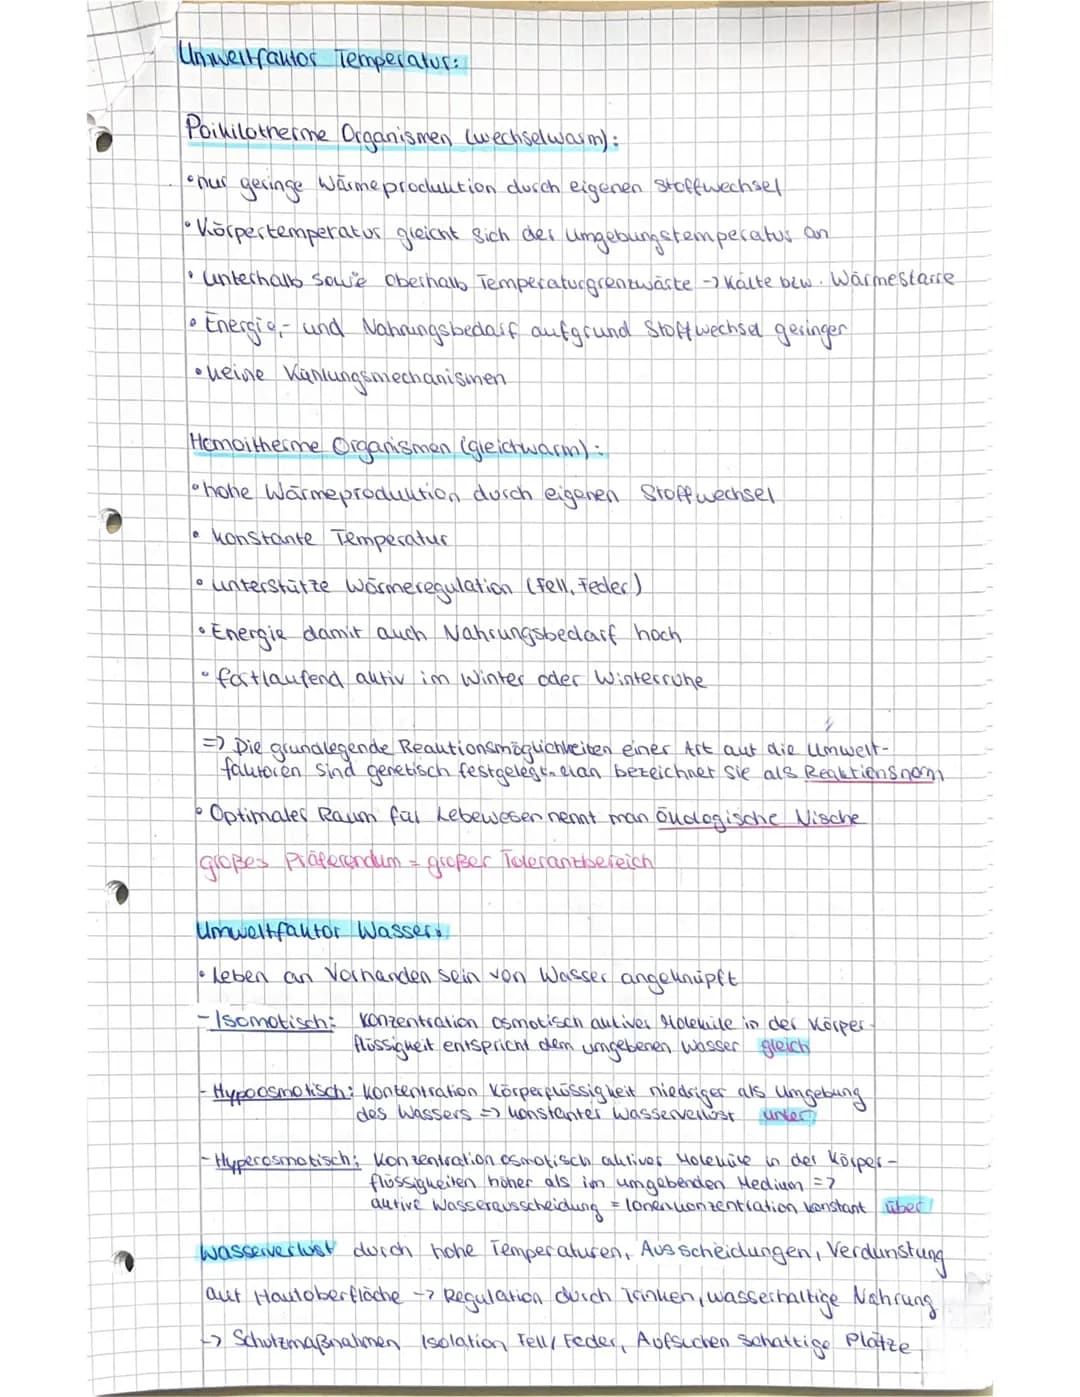 Umweltfaktor Temperatur:
Poikilotherme Organismen (wechselwarm):
• nur geringe Wärmeproduktion durch eigenen Stoffwechsel
• Körpertemperatur gleicht sich der Umgebungstemperatur an
• unterhalb sowie oberhalb Temperaturgrenzwärte -> Kälte bzw. Wärmestarre
• Energie,- und Nahrungsbedarf aufgrund Stoffwechsel geringer
• keine Kühlungsmechanismen
Homoitherme Organismen (gleichwarm):
• hohe Wärmeproduktion durch eigenen Stoffwechsel
• konstante Temperatur
• unterstütze Wärmeregulation (Fell, Feder)
• Energie damit auch Nahrungsbedarf hoch
• fortlaufend aktiv im Winter oder Winterruhe
=> Die grundlegende Reaktionsmöglichkeiten einer Art auf die Umwelt-
faktoren sind genetisch festgelegt. Man bezeichnet sie als Reaktionsnorm
• Optimaler Raum für Lebewesen nennt man Ökologische Nische
großes Präferendum = großer Toleranzbereich
Umweltfaktor Wasser:
• Leben an Vorhanden sein von Wasser angeknüpft
- Isomotisch: Konzentration osmotisch aktiver Moleküle in der Körper-
flüssigkeit entspricht dem umgebenen Wasser gleich
- Hypoosmotisch: Konzentration Körperflüssigkeit niedriger als Umgebung
des Wassers => konstanter Wasserverlust unter
- Hyperosmotisch: Konzentration osmotisch aktiver Moleküle in der Körper-
flüssigkeiten höher als im umgebenden Medium =>
aktive Wasserausscheidung = Ionenkonzentration konstant über!
Wasserverlust durch hohe Temperaturen, Ausscheidungen, Verdunstung
auf Hautoberfläche -> Regulation durch Trinken, wasserhaltige Nahrung
-> Schutzmaßnahmen Isolation Fell/Feder, Aufsuchen schattige Plätze